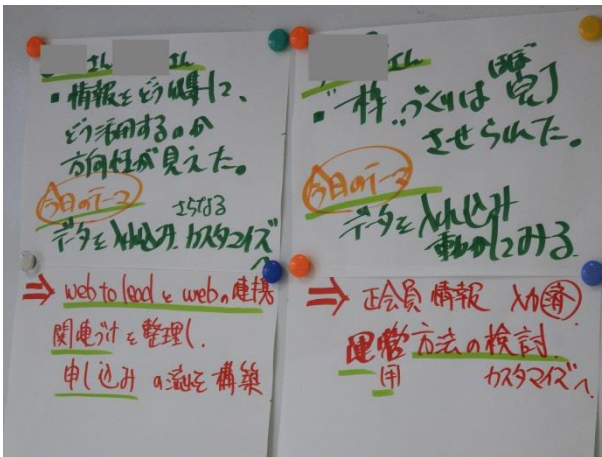 さん さん
・情報をどう収集して、
どう活用するのか
方向性が見えた。
今日のテーマ
データを入れ込み さらなるカスタマイズへ
⇒ web to leadとwebの連携
関連づけを整理し、
申し込みの流を構築
さん
・"枠"づくりは ほぼ完了
させられた。
今日のテーマ
データを入れ込み
動かしてみる
⇒ 正会員情報 入力済
運営方法の検討
用 カスタマイズへ